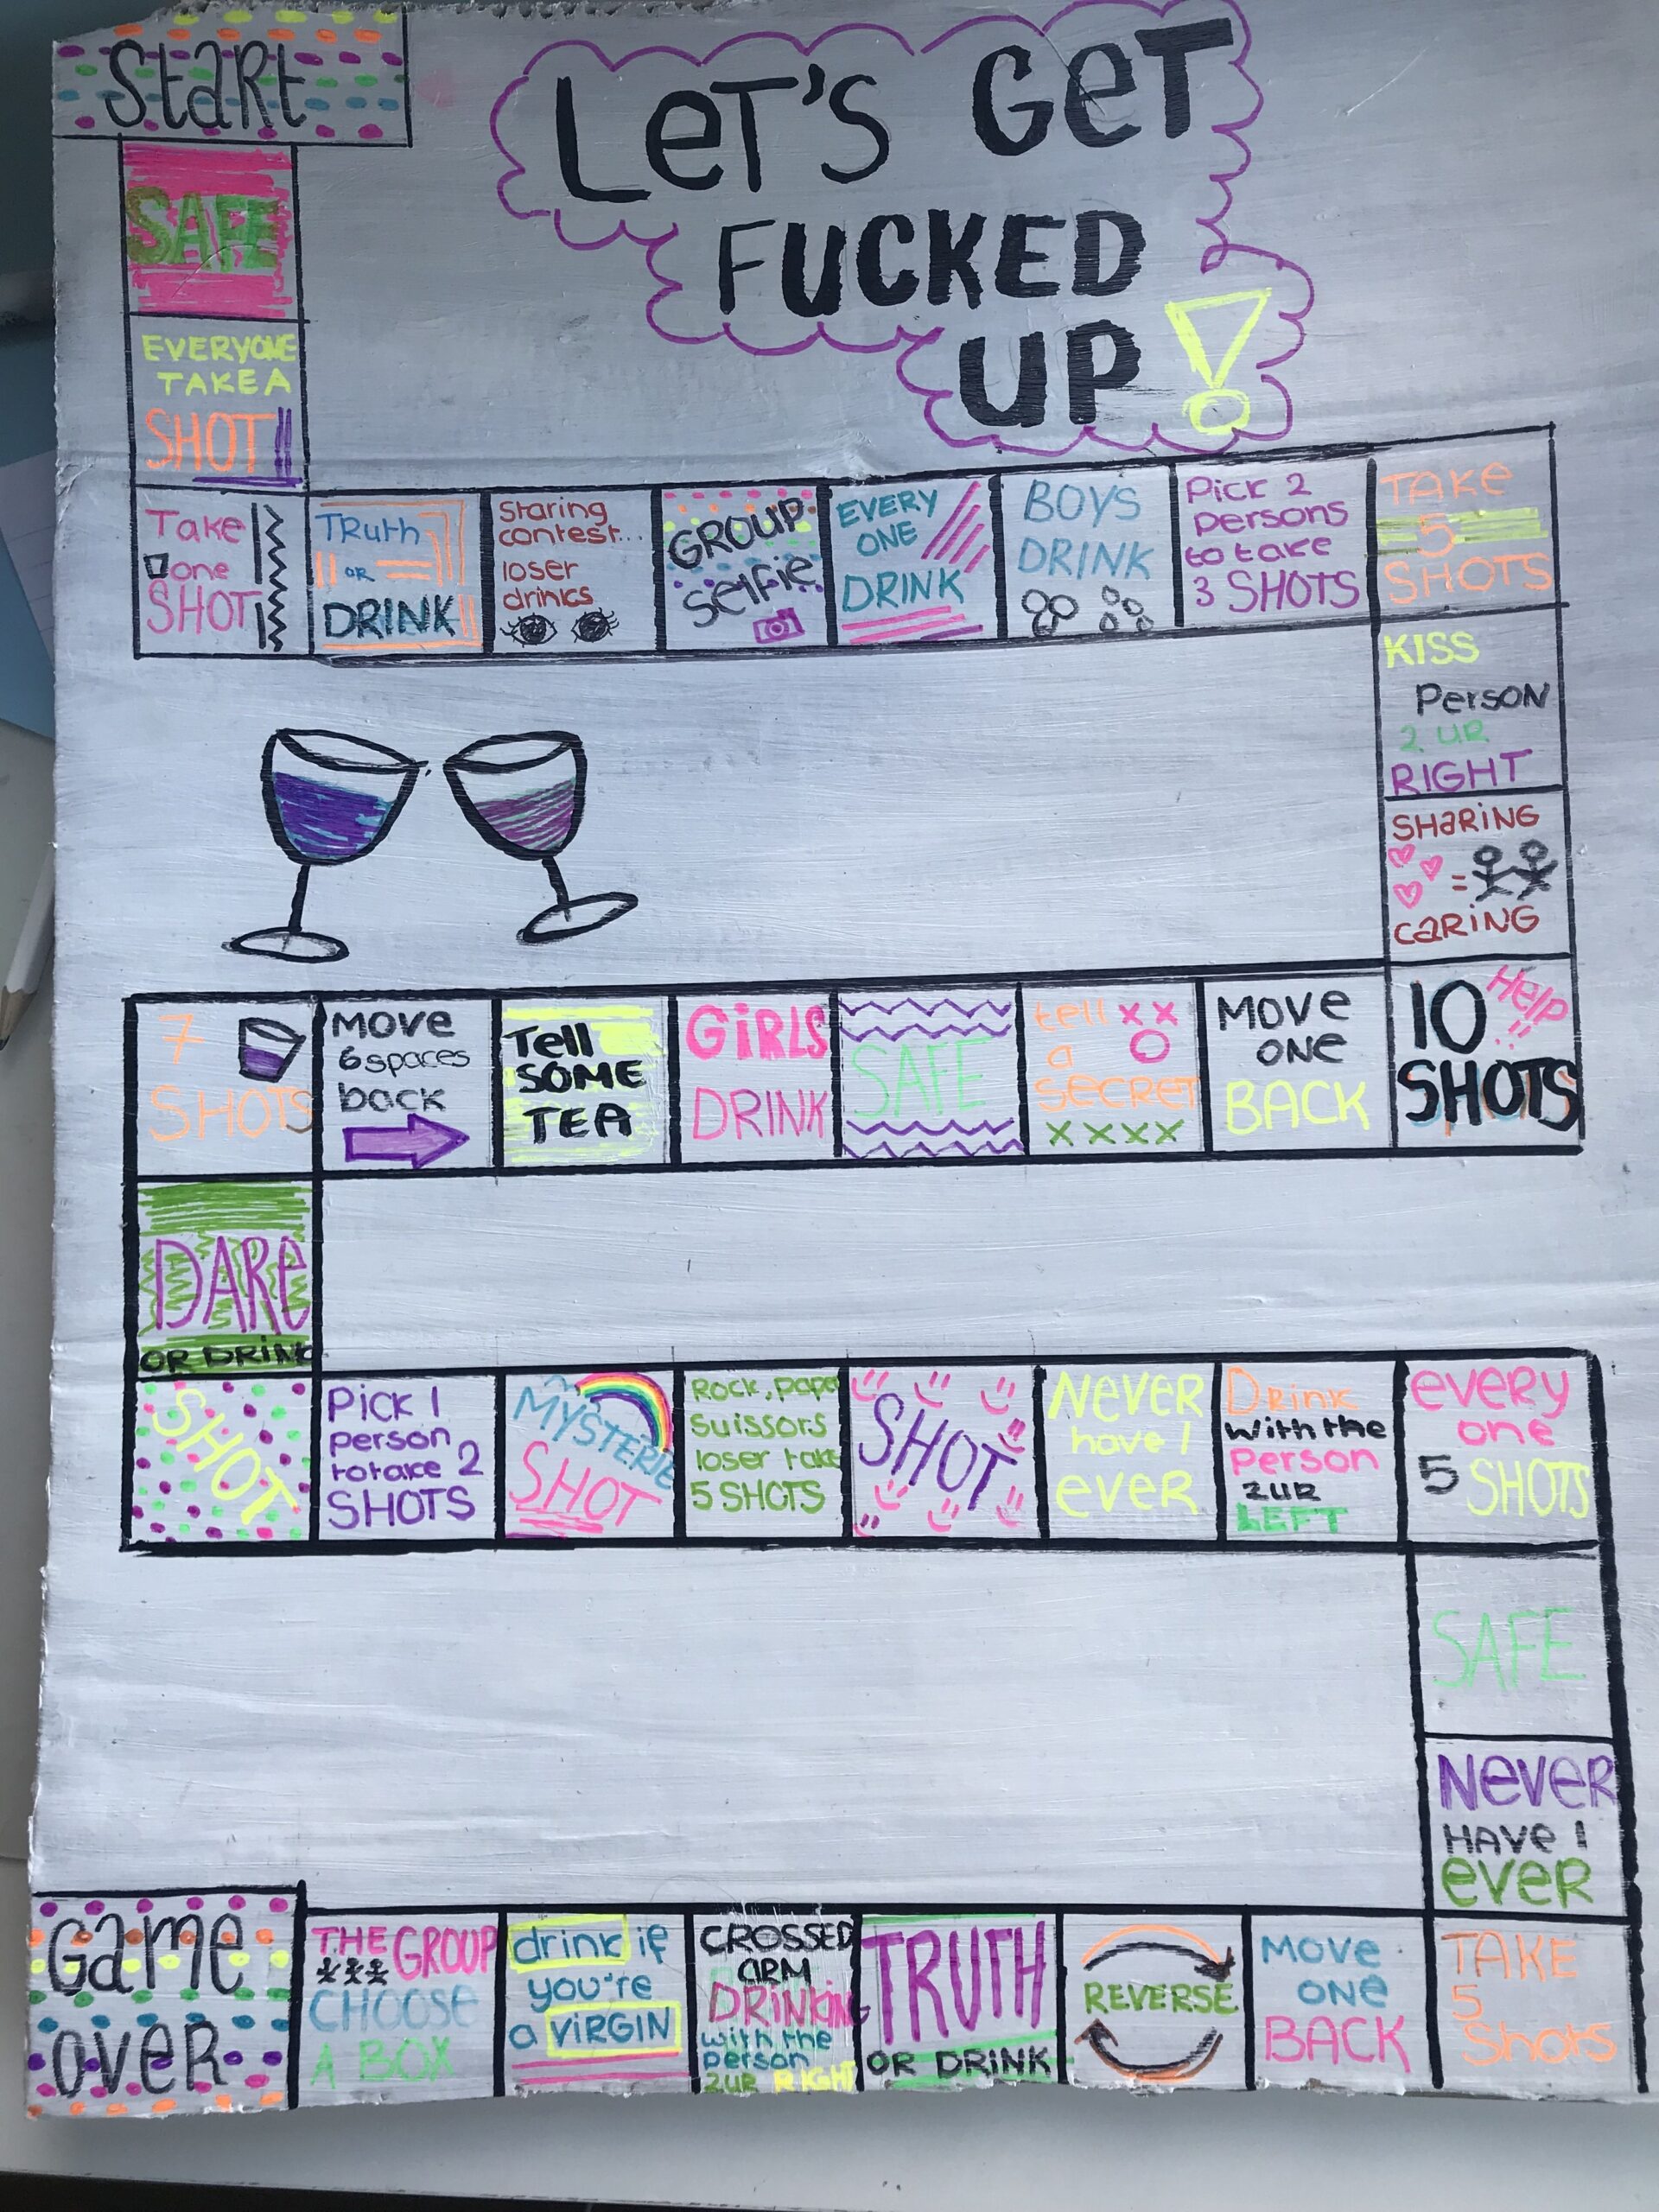 Start
LET'S GET
FUCKED
UP!
SAFE
EVERYONE
TAKE A
SHOT!
Take
one
SHOT
TRuth
OR
DRINK
Staring
contest...
loser
drinks
GROUP
selfie
EVERY
ONE
DRINK
BOYS
DRINK
Pick 2
persons
to take
3 SHOTS
TAKE
5
SHOTS
KISS
PERSON
2 UR
RIGHT
SHARING
=
CARING
10
Help
SHOTS
MOVE
ONE
BACK
tell xx
a O
SECRET
xxxx
SAFE
GIRLS
DRINK
Tell
SOME
TEA
MOVE
6 spaces
back
7
SHOTS
DARE
OR DRINK
SHOT
Pick 1
person
to take 2
SHOTS
MYSTERIE
SHOT
Rock, pape
suissors
loser take
5 SHOTS
SHOT
NEVER
have I
ever
Drink
with the
person
2 UR
LEFT
every
one
5 SHOTS
SAFE
Never
HAVE I
EVER
TAKE
5
Shots
MOVE
ONE
BACK
REVERSE
TRUTH
OR DRINK
CROSSED
ARM
DRINKING
with the
person
2 UR RIGHT
drink if
you're
a VIRGIN
THE GROUP
CHOOSE
A BOX
Game
over